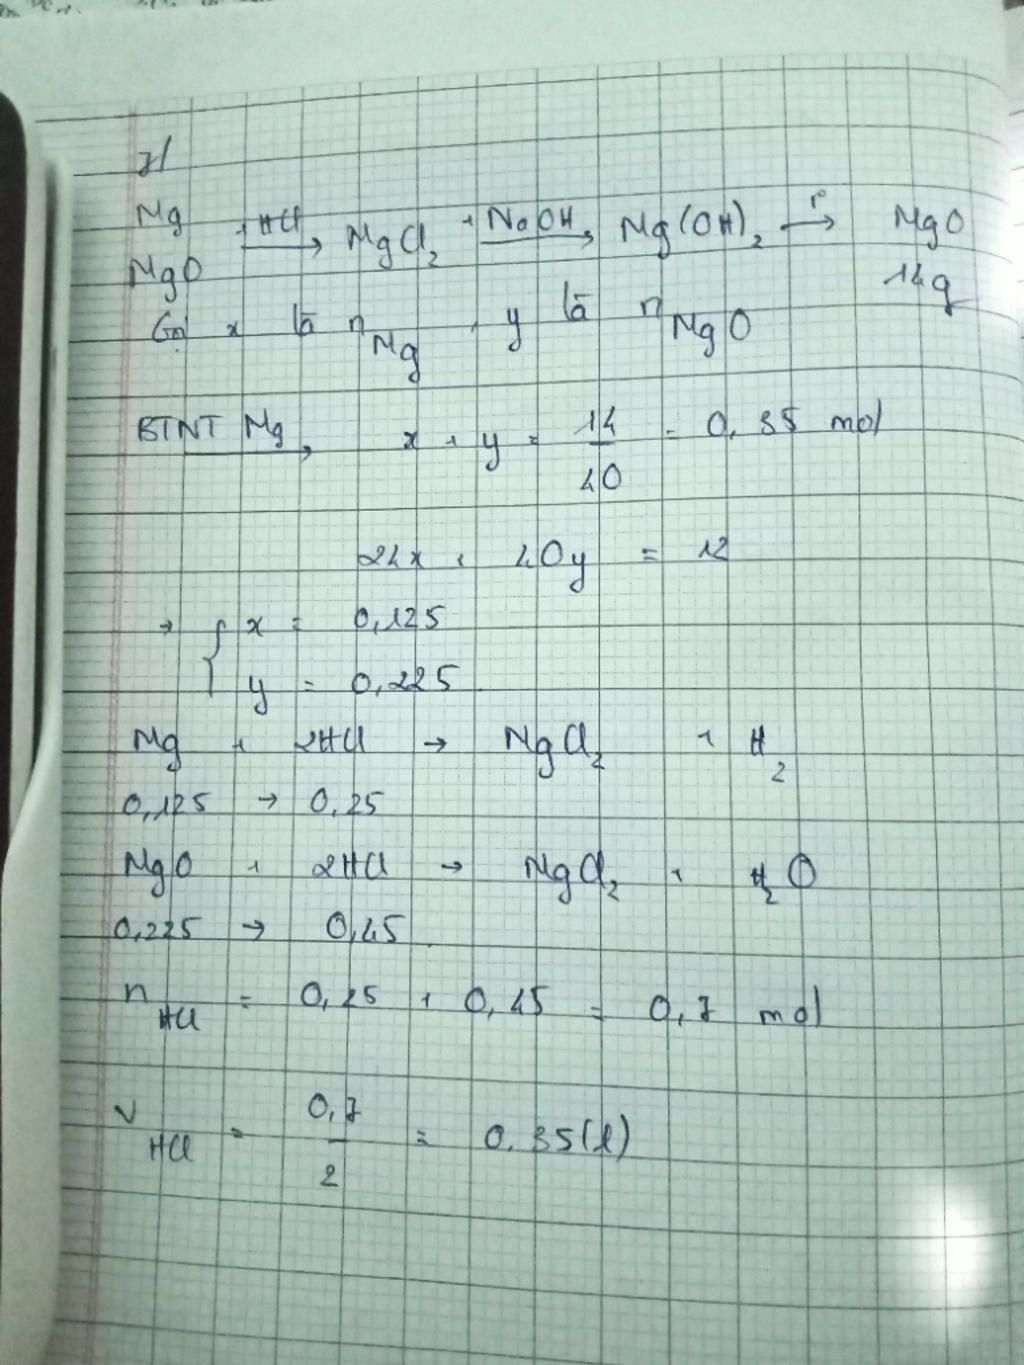 7/
Mg
MgO +HCl→ MgCl₂ +NaOH→ Mg(OH)₂ t°→ MgO
14g
Gọi x là nMg, y là nMgO
BTNT Mg→ x + y = 14/40 = 0,35 mol
24x + 40y = 12
→ { x = 0,125
y = 0,225
Mg + 2HCl → MgCl₂ + H₂
0,125 → 0,25
MgO + 2HCl → MgCl₂ + H₂O
0,225 → 0,45
nHCl = 0,25 + 0,45 = 0,7 mol
VHCl = 0,7/2 = 0,35(l)